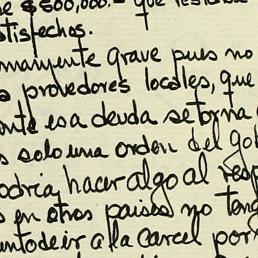 de $500,000.- que
tisfechos.
mamente grave pues no
provedores locales, que
nte esa deuda se torna
s solo una orden del gob
odria hacer algo al resp
s en otros paises no teng
untodeir a la carcel por